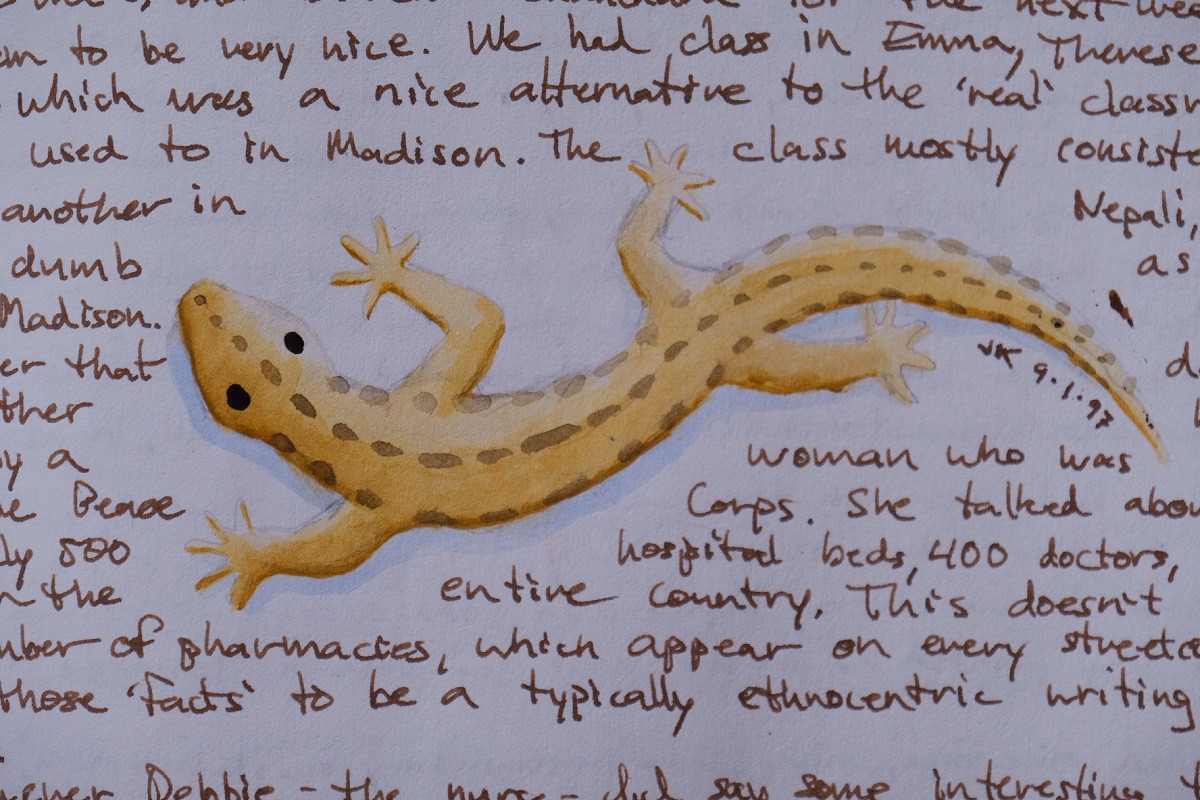 for the next wee
em to be very nice. We had class in Emma, Therese
which was a nice alternative to the 'real' classr
used to in Madison. The class mostly consiste
another in Nepali,
dumb as
Madison.
er that d
ther
by a woman who was
e Peace Corps. She talked abou
ly 500 hospital beds, 400 doctors,
n the entire country. This doesn't
mber of pharmacies, which appear on every streetco
those 'facts' to be a typically ethnocentric writing
Debbie - the nurse - did say some interesting t
VK 9.1.97